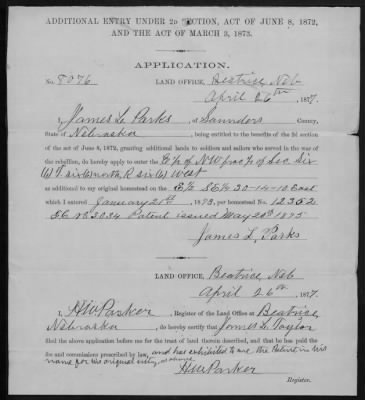 ADDITIONAL ENTRY UNDER 2D SECTION, ACT OF JUNE 8, 1872,
AND THE ACT OF MARCH 3, 1873.
APPLICATION.
No. 8076 LAND OFFICE, Beatrice Neb
April 26th, 1877.
I, James L. Parks of Saunders County,
State of Nebraska, being entitled to the benefits of the 2d section
of the act of June 8, 1872, granting additional lands to soldiers and sailors who served in the war of
the rebellion, do hereby apply to enter the E½ of NW frac ¼ of Sec. Six
(6) T. six (6) north R six (6) West
as additional to my original homestead on the E½ SE¼ 30-14-10 East
which I entered January 20th, 1873, per homestead No. 12352
3024 Patent issued May 20th 1875
James L. Parks
LAND OFFICE, Beatrice, Neb
April 26th, 1877.
I, HW Parker, Register of the Land Office at Beatrice,
Nebraska, do hereby certify that James L. Taylor
filed the above application before me for the tract of land therein described, and that he has paid the
fee and commissions prescribed by law, and has exhibited to me, the Patent in his
name for his original entry, as above
HW Parker
Register.